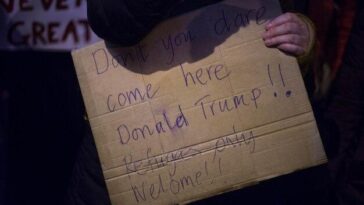 NEVER
GREAT
Don't you dare
come here
Donald Trump!!
Refuges only
Welcome!!